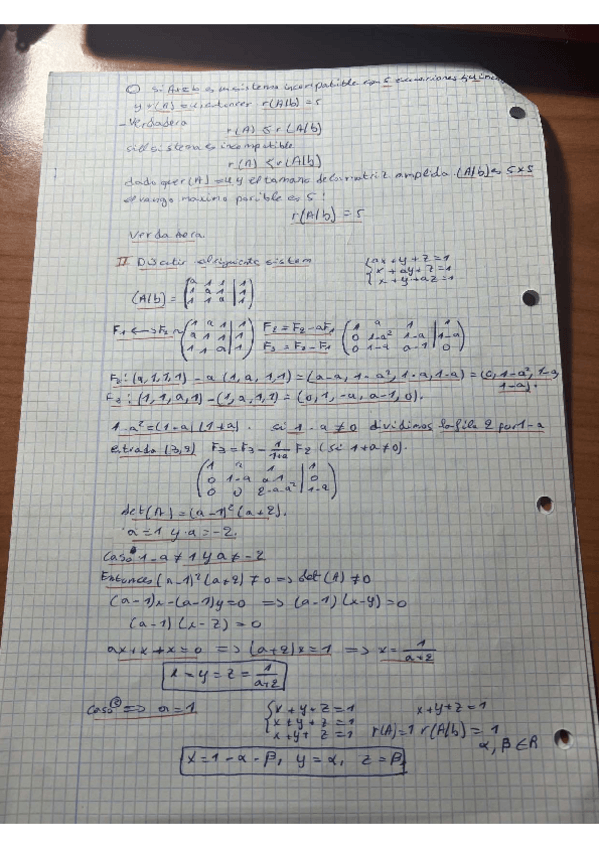 C) Si Ax=b es un sistema incompatible con 5 ecuaciones y 4 incog
y r(A) = 4 entonces r(A|b) = 5
- Verdadera
r(A) ≤ r(A|b)
si el sistema es incompatible
r(A) < r(A|b)
dado que r(A) = 4 y el tamaño de la matriz amplida (A|b) es 5x5
el rango maximo posible es 5:
r(A|b) = 5
Verdadera
II Discutir el siguiente sistem { ax + y + z = 1
{ x + ay + z = 1
{ x + y + az = 1
(A|b) = ( a 1 1 | 1
1 a 1 | 1
1 1 a | 1 )
F1 <-> F2 ~ ( 1 a 1 | 1
a 1 1 | 1
1 1 a | 1 ) F2 = F2 - aF1
F3 = F3 - F1 ( 1 a 1 | 1
0 1-a² 1-a | 1-a
0 1-a a-1 | 0 )
F2: (a,1,1,1) - a (1,a,1,1) = (a-a, 1-a², 1-a, 1-a) = (0, 1-a², 1-a,
1-a).
F2: (1,1,a,1) - (1,a,1,1) = (0, 1,-a, a-1, 0).
1-a² = (1-a)(1+a). si 1-a ≠ 0 dividimos la fila 2 por 1-a
entrada (3,2) F3 = F3 - 1/(1+a) F2 (si 1+a ≠ 0).
( 1 a 1 | 1
0 1-a a-1 | 0
0 0 2-a-a² | 1-a )
det(A) = (a-1)² (a+2).
a = 1 y a = -2.
Caso 1 - a ≠ 1 y a ≠ -2
Entonces (a-1)² (a+2) ≠ 0 => det(A) ≠ 0
(a-1)x - (a-1)y = 0 => (a-1)(x-y) = 0
(a-1)(x-z) = 0
ax + x + x = 0 => (a+2)x = 1 => x = 1/(a+2)
x = y = z = 1/(a+2)
Caso 2 => a = 1 { x + y + z = 1 x + y + z = 1
{ x + y + z = 1
{ x + y + z = 1 r(A) = 1 r(A|b) = 1
α, β ∈ R
x = 1 - α - β, y = α, z = β